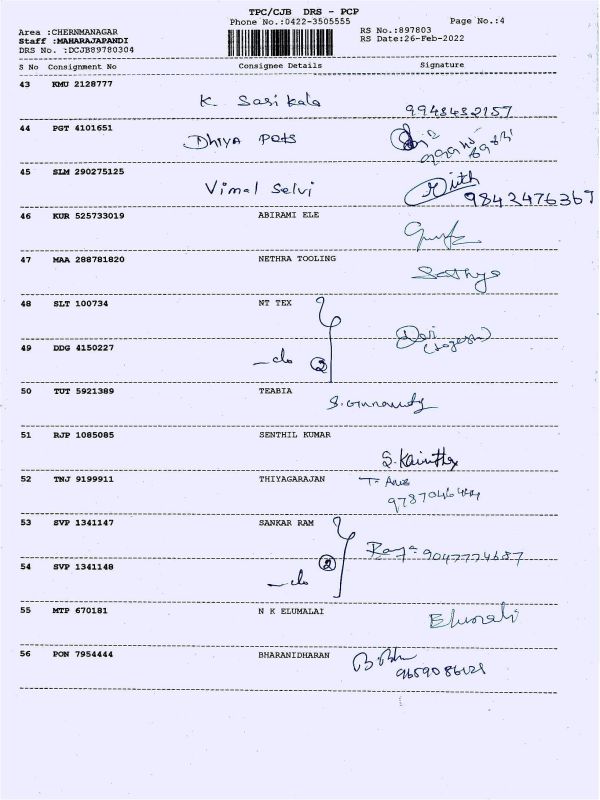 TPC/CJB DRS - PCP
Phone No.:0422-3505555 Page No.:4
Area :CHERNMANAGAR RS No.:897803
Staff :MAHARAJAPANDI RS Date:26-Feb-2022
DRS No. :DCJB89780304
S No Consignment No Consignee Details Signature
43 KMU 2128777
K. Sasikala 9948432157
44 PGT 4101651
Dhiya Pets
45 SLM 290275125
Vimal Selvi 9842476369
46 KUR 525733019 ABIRAMI ELE
47 MAA 288781820 NETHRA TOOLING
Sathya
48 SLT 100734 NT TEX
Devi
49 DDG 4150227
2
50 TUT 5921389 TEABIA
51 RJP 1085085 SENTHIL KUMAR
52 TNJ 9199911 THIYAGARAJAN
53 SVP 1341147 SANKAR RAM
9047774687
54 SVP 1341148
2
55 MTP 670181 N K ELUMALAI
Elumalai
56 PON 7954444 BHARANIDHARAN